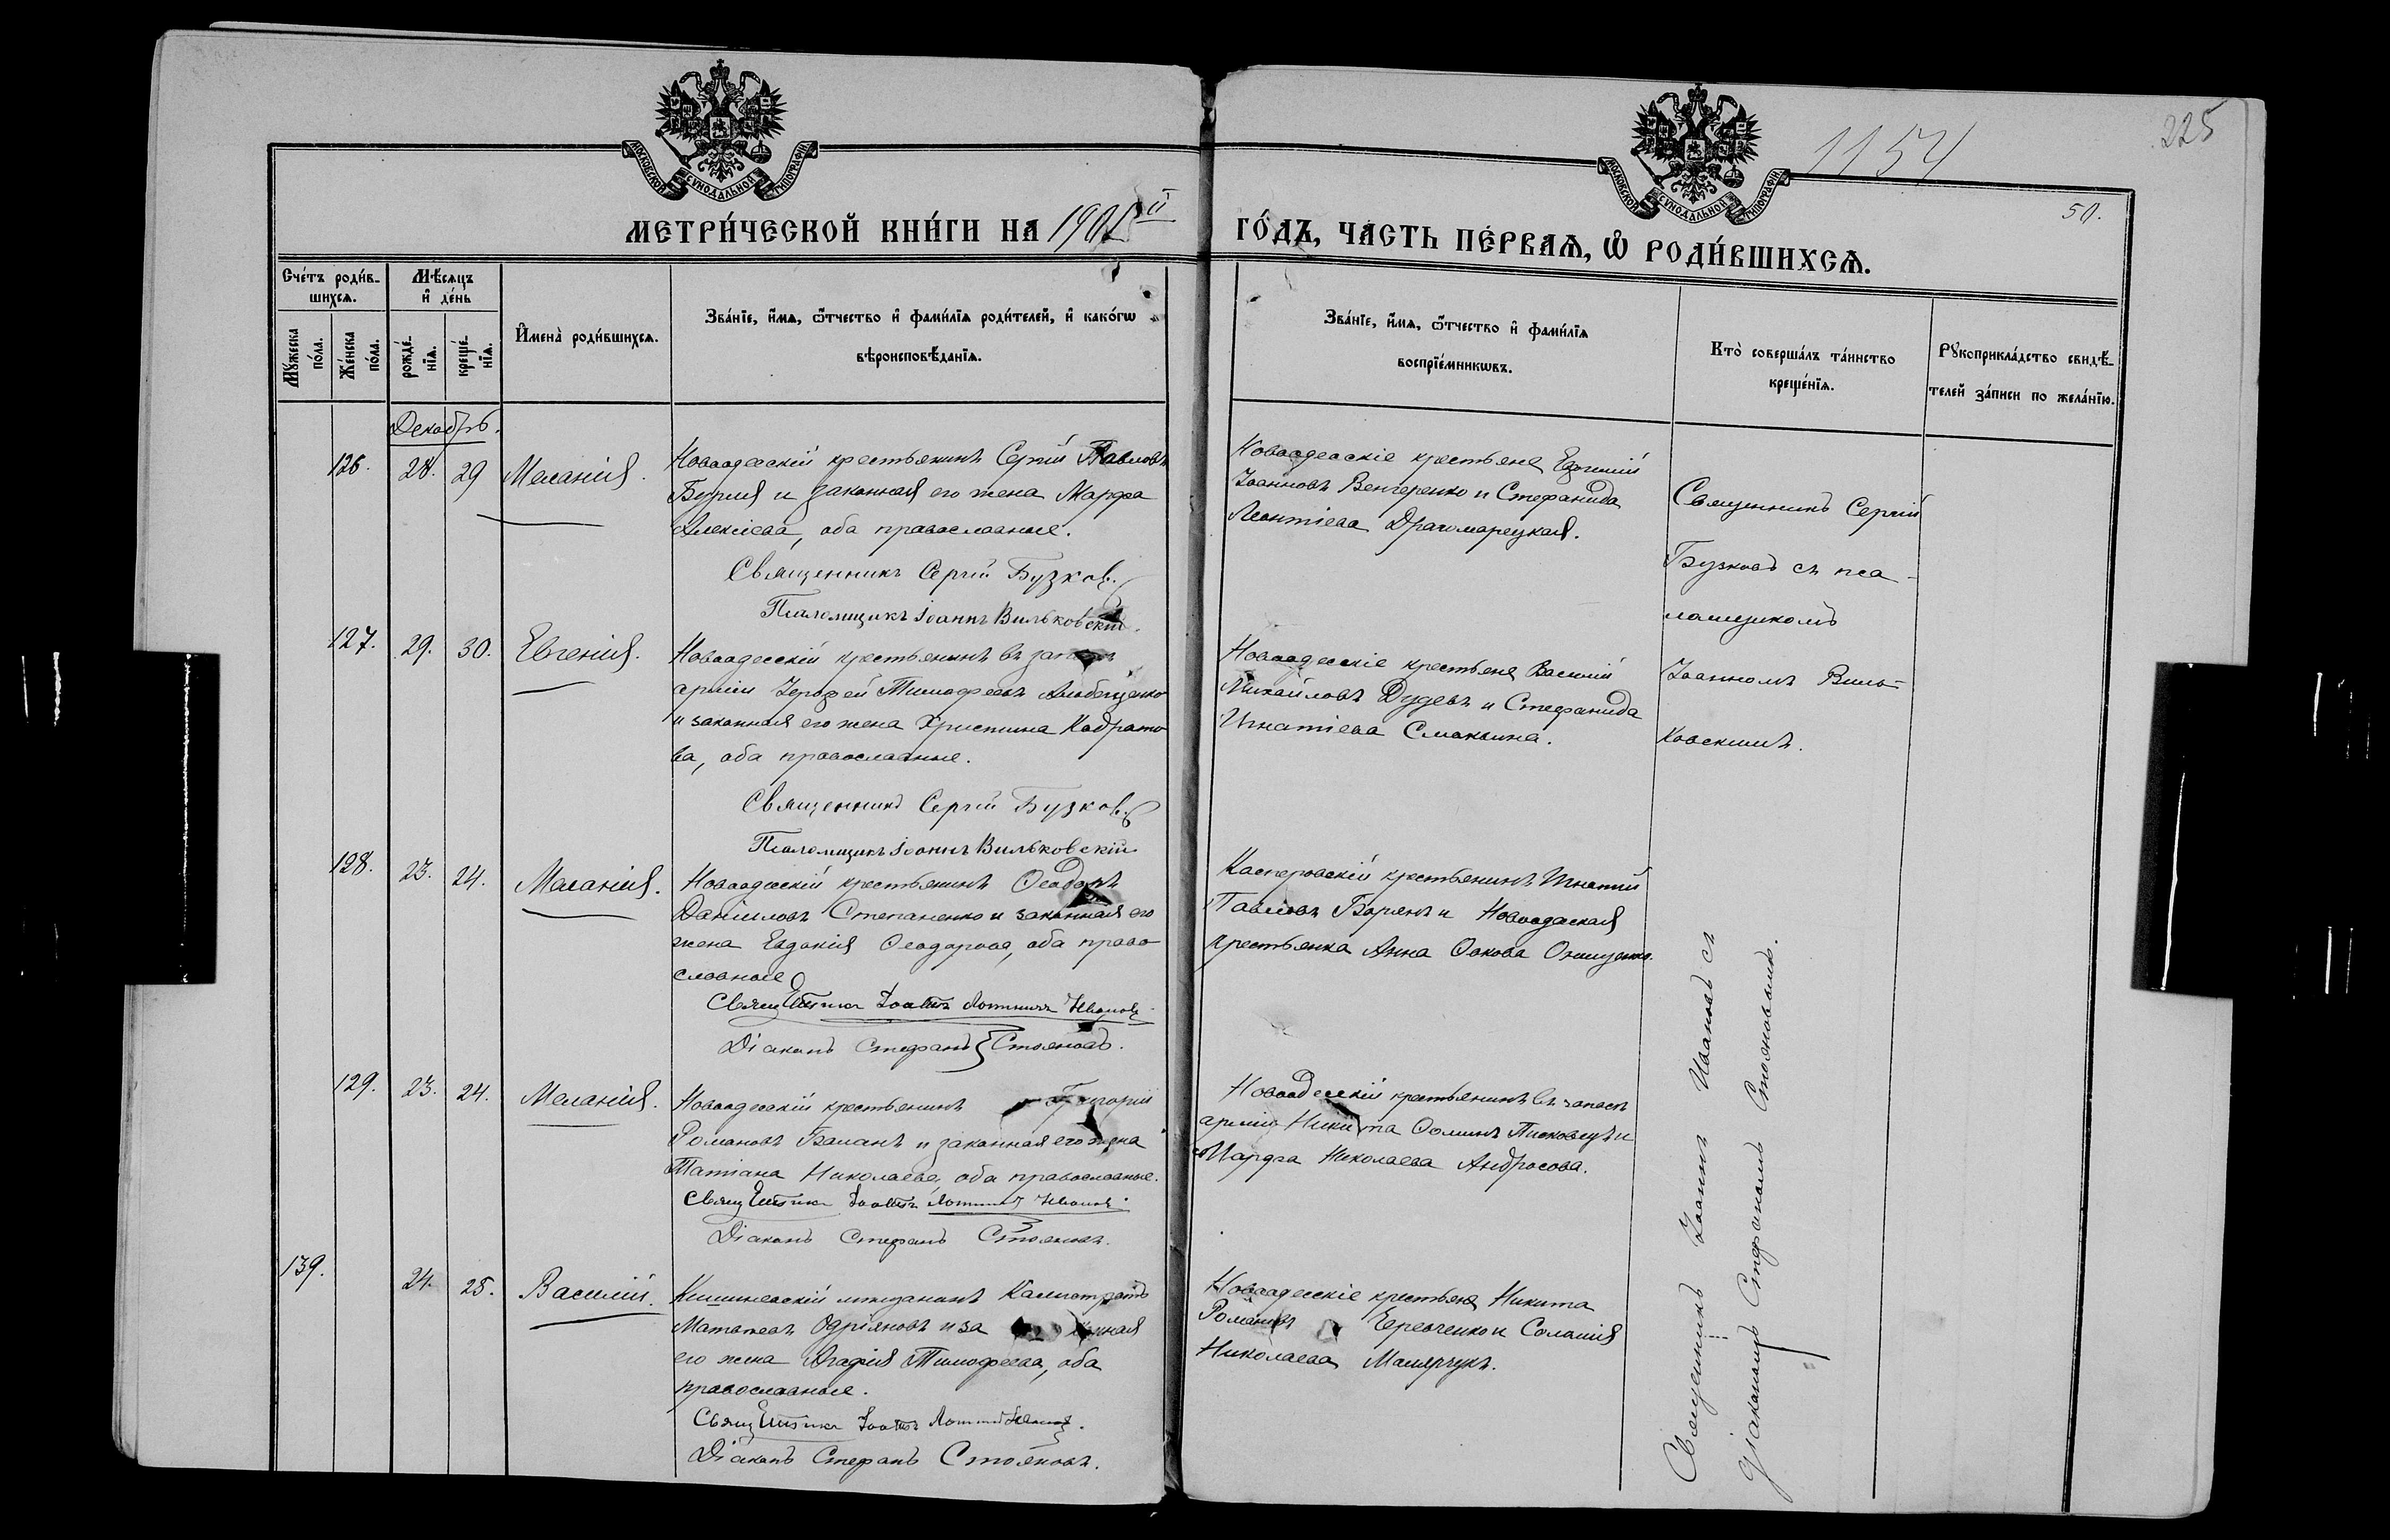 225
1154
50.
МОСКОВСКОЙ СѴНОДАЛЬНОЙ ТИПОГРАФІИ
МОСКОВСКОЙ СѴНОДАЛЬНОЙ ТИПОГРАФІИ
МЕТРИ́ЧЕСКОЙ КНИ́ГИ НА 190
ГО́ДЪ, ЧАСТЬ ПЕ́РВАѦ, Ѽ РОДИ́ВШИХСѦ.
Сче́тъ роди́в-
шихсѧ.
Мѣ́сѧцъ
и҆ де́нь
Мꙋ́жеска
по́ла.
Же́нска
по́ла.
рожде́-
нїѧ.
креще́-
нїѧ.
И҆мена̀ роди́вшихсѧ.
Зва́нїе, и҆́мѧ, ѻ҆́тчество и҆ фами́лїѧ роди́телей, и҆ како́гѡ
вѣроисповѣ́данїѧ.
Зва́нїе, и҆́мѧ, ѻ҆́тчество и҆ фами́лїѧ
воспрїе́мникѡвъ.
Кто̀ соверша́лъ та́инство
креще́нїѧ.
Рꙋкоприкла́дство свидѣ́-
телей за́писи по жела́нїю.
Декабрь.
126. 28. 29 Меланія.
Новоодесскій крестьянинъ Сергій Павловъ
Бурля и законная его жена Марфа
Алексіева, оба православные.
Священникъ Сергій Бузков.
Псаломщикъ Іоаннъ Вильковскій.
Новоодесскіе крестьяне Евгеній
Іоанновъ Венгеренко и Стефанида
Леонтіева Драгомарецкая.
Священникъ Сергій
Бузковъ съ пса-
ломщикомъ
Іоанномъ Виль-
ковскимъ.
127. 29. 30. Евгенія.
Новоодесскій крестьянинъ въ
арміи Іерофей Тимофеевъ
и законная его жена Христина Кодрато
ва, оба православные.
Священникъ Сергій Бузков.
Псаломщикъ Іоаннъ Вильковскій
Новоодесскіе крестьяне Василій
Михайловъ Дудевъ и Стефанида
Игнатіева Смокина.
128. 23. 24. Меланія.
Новоодесскій крестьянинъ Ѳеодоръ
Даніиловъ Степаненко и законная его
жена Евдокія Ѳеодорова, оба право-
славные
Священникъ Іоаннъ Ивановъ
Діаконъ Стефанъ Стояновъ.
Касперовскій крестьянинъ Игнатій
Павловъ и Новоодесская
крестьянка Анна Онищенко.
129. 23. 24. Меланія.
Новоодесскій крестьянинъ Григорій
Романовъ Баланъ и законная его жена
Татіана Николаева, оба православные.
Священникъ Іоаннъ Ивановъ
Діаконъ Стефанъ Стояновъ.
Новоодесскій крестьянинъ въ запасѣ
арміи Никита Ѳоминъ и
Марфа Николаева Андросова.
139. 24. 25. Василій.
Кишиневскій мѣщанинъ Калистратъ
Матѳеевъ Одріяновъ и за нная
его жена Агафія Тимофеева, оба
православные.
Священникъ Іоаннъ
Діаконъ Стефанъ Стояновъ.
Новоодесскіе крестьяне Никита
Романовъ Черевченко и Соломія
Николаева Малярчукъ.
Священникъ Іоаннъ Ивановъ съ
діакономъ Стефаномъ Стояновымъ.